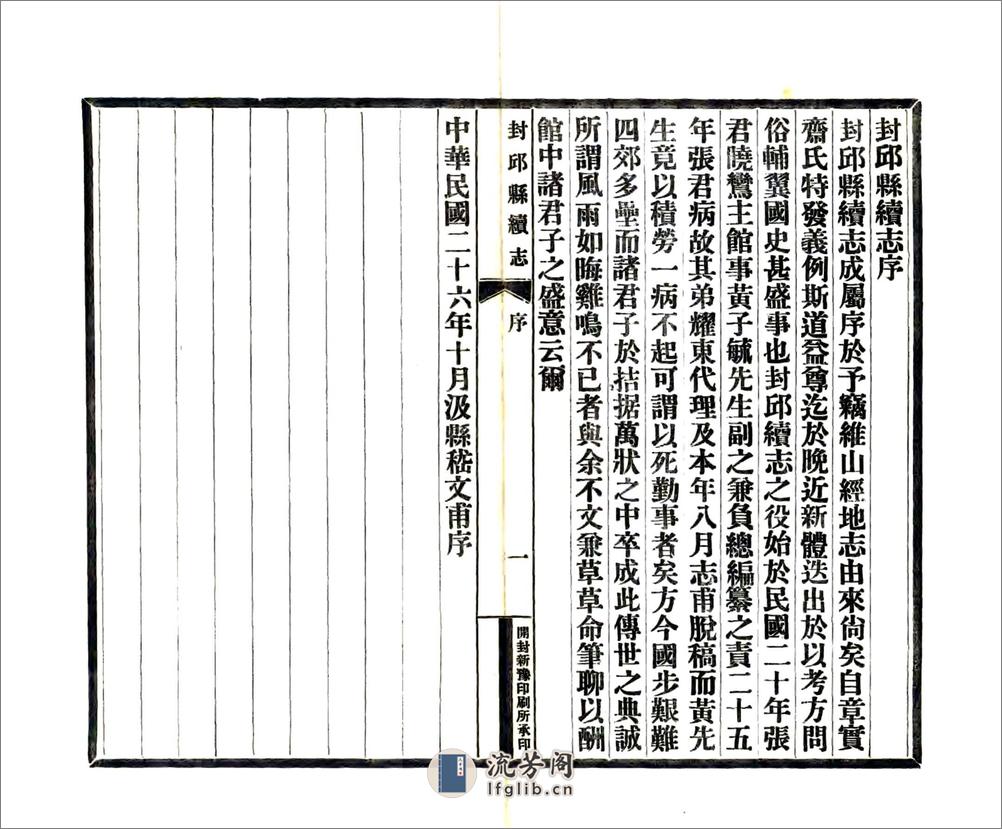 封邱縣續志序
封邱縣續志成屬序於予竊維山經地志由來尙矣自章實
齋氏特發義例斯道益尊迄於晚近新體迭出於以考方問
俗輔翼國史甚盛事也封邱續志之役始於民國二十年張
君曉鸞主館事黃子毓先生副之兼負總編纂之責二十五
年張君病故其弟耀東代理及本年八月志甫脫稿而黃先
生竟以積勞一病不起可謂以死勤事者矣方今國步艱難
四郊多壘而諸君子於拮据萬狀之中卒成此傳世之典誠
所謂風雨如晦雞鳴不已者與余不文兼草草命筆聊以酬
館中諸君子之盛意云爾
封邱縣續志
序
一
開封新豫印刷所承印
中華民國二十六年十月汲縣嵇文甫序
流芳阁
lfglib.cn